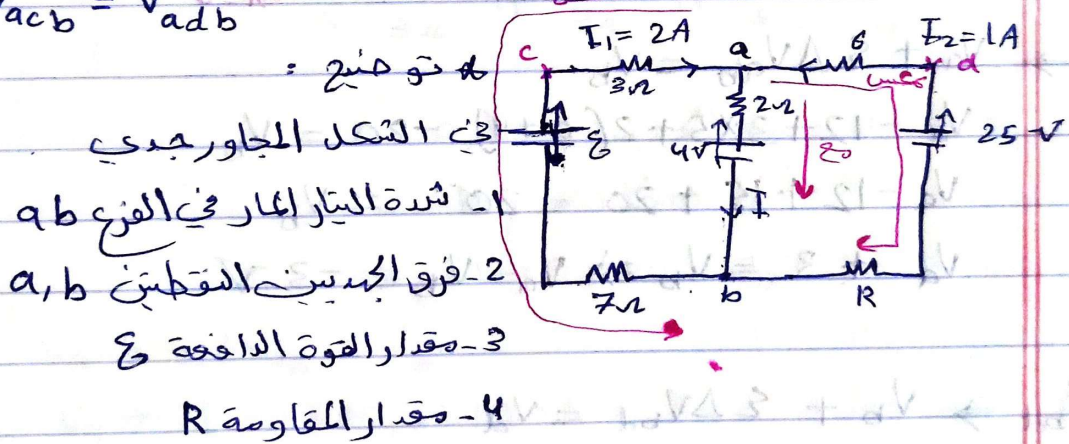 Vacb = Vadb
* توضيح :
في الشكل المجاور جدي
1- شدة التيار المار في الفرع ab
2- فرق الجهد بين النقطتين a,b
3- مقدار القوة الدافعة ع
4- مقدار المقاومة R
I₁ = 2A
I₂ = 1A
c
a
6
d
3Ω
عكس
2Ω
ع
4V
مع
25 V
I
7Ω
b
R